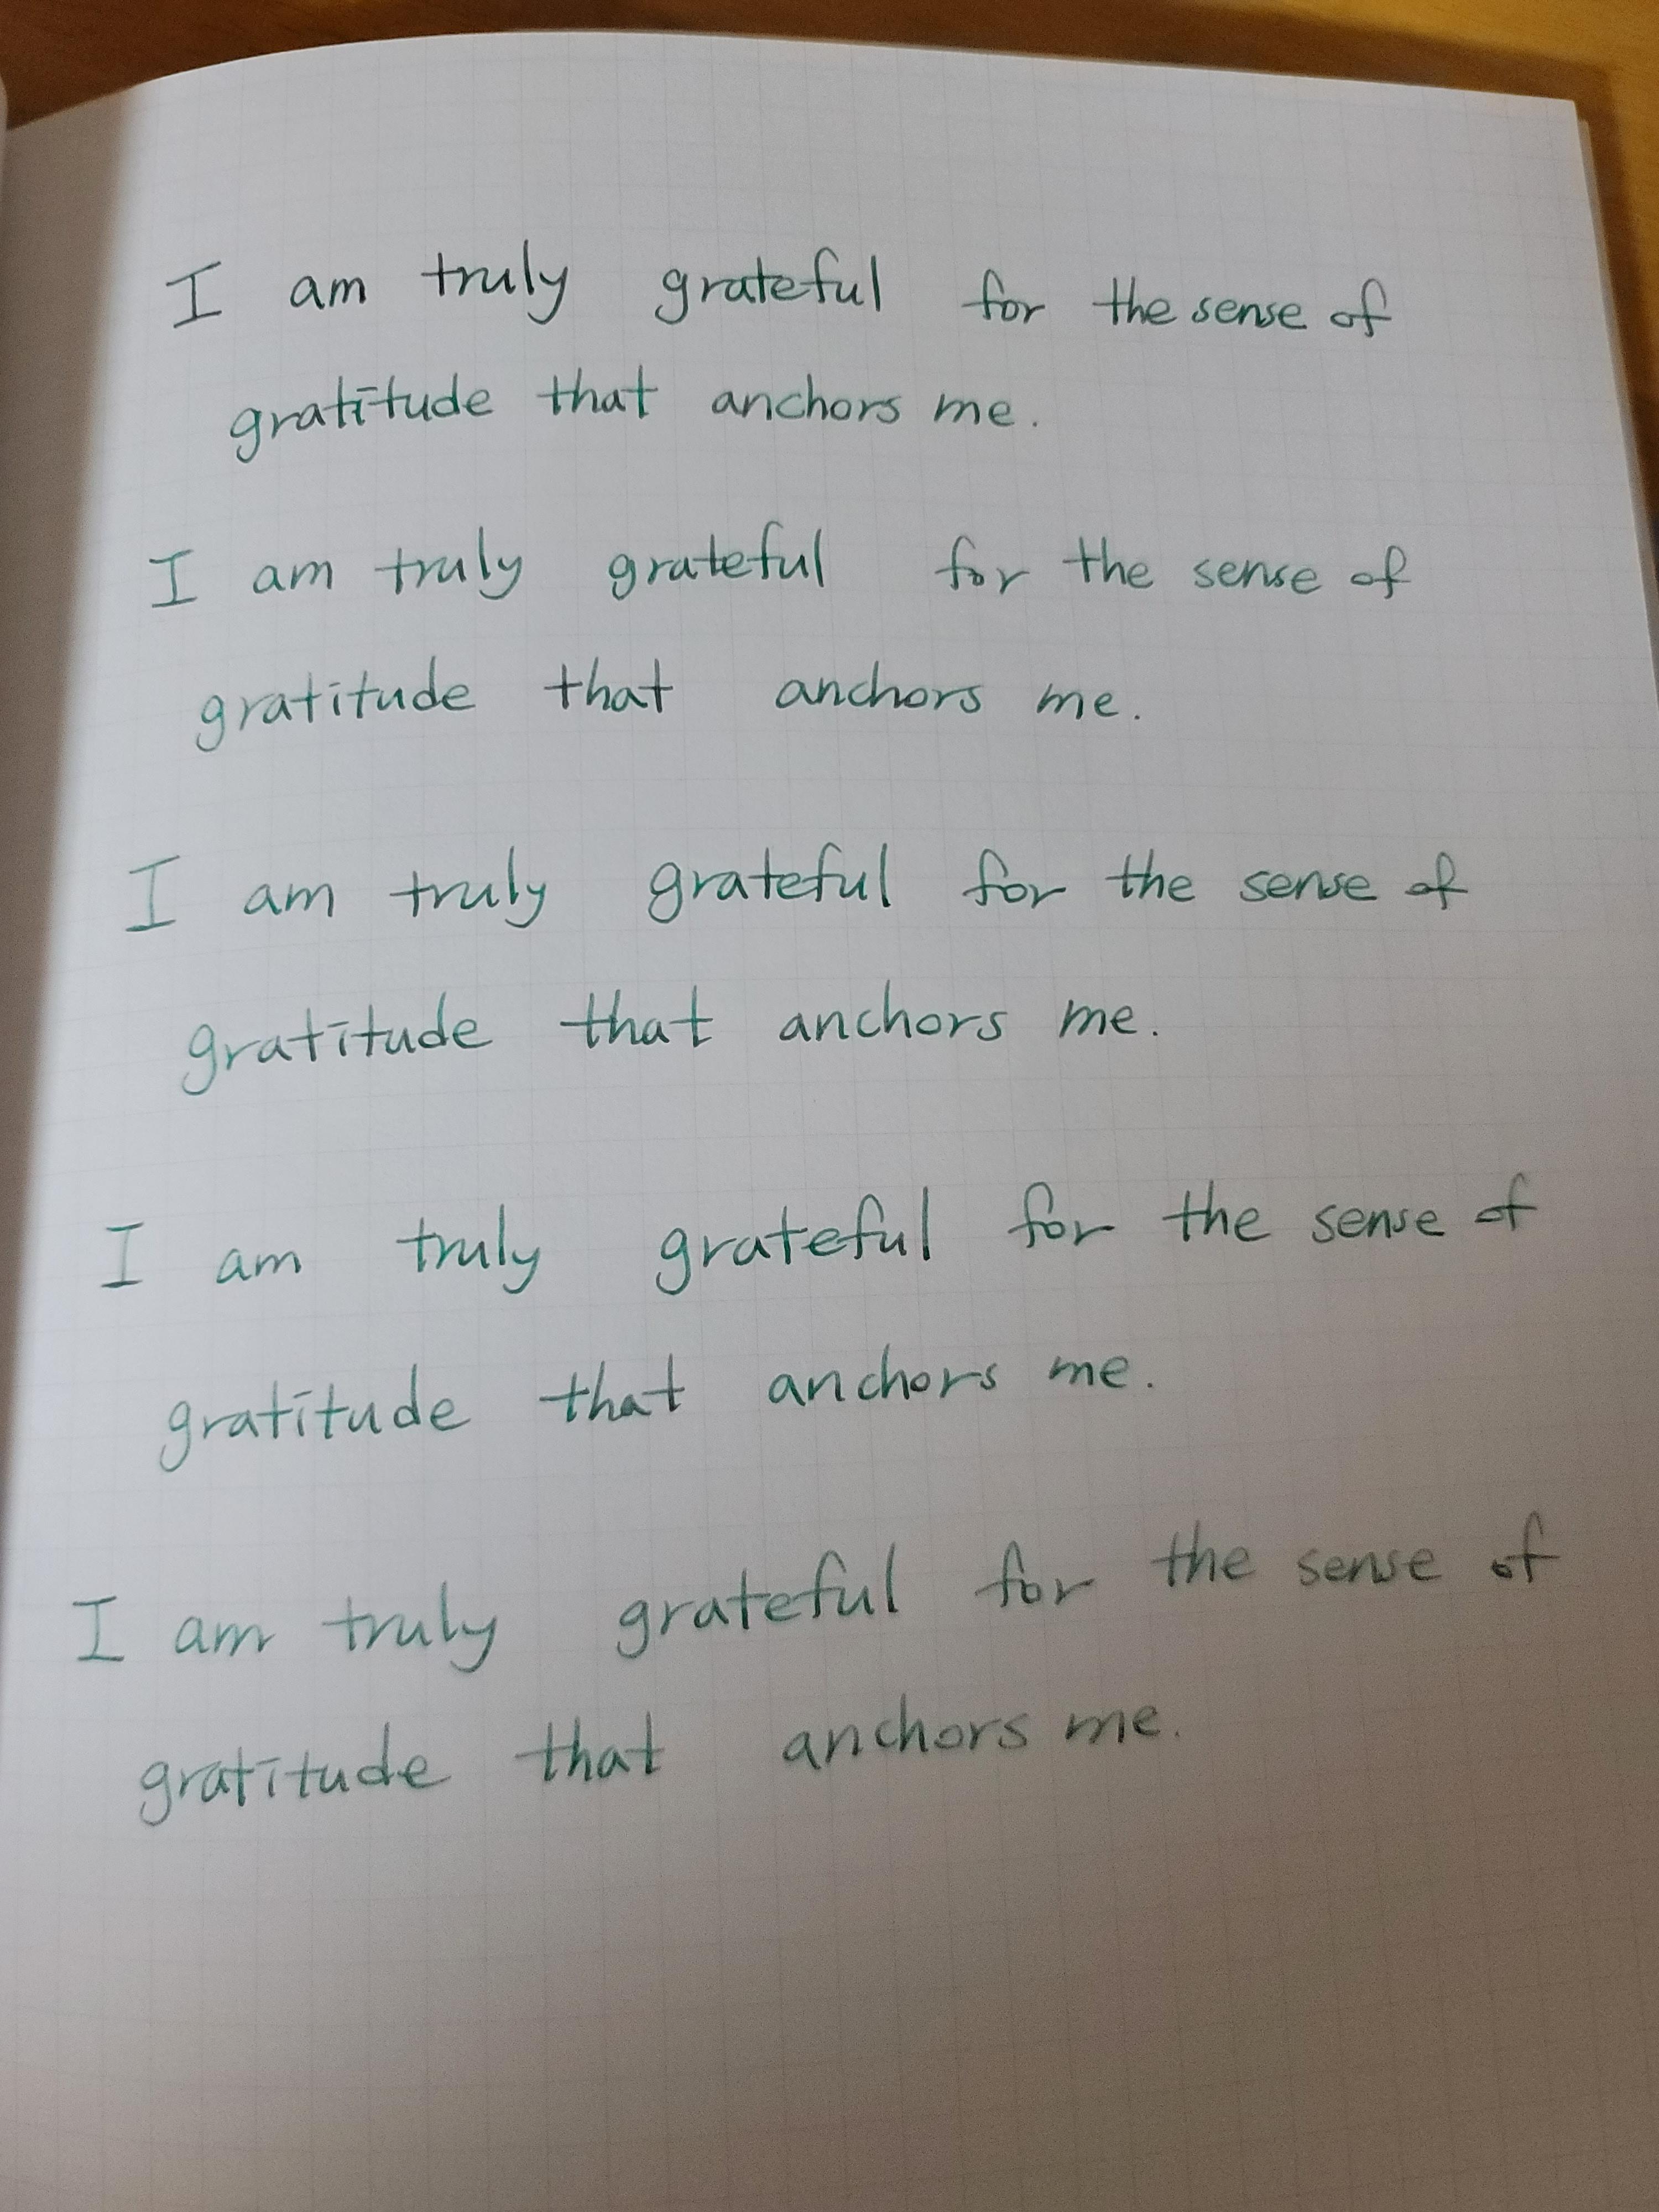 I am truly grateful for the sense of
gratitude that anchors me.
I am truly grateful for the sense of
gratitude that anchors me.
I am truly grateful for the sense of
gratitude that anchors me.
I am truly grateful for the sense of
gratitude that anchors me.
I am truly grateful for the sense of
gratitude that anchors me.